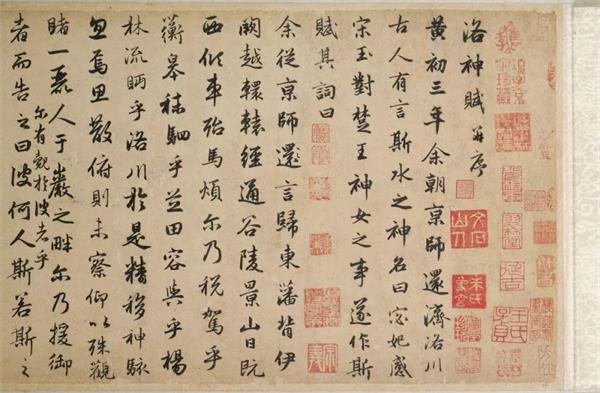 文石山人
洛神賦 并序
黄初三年余朝京師還濟洛川
古人有言斯水之神名曰宓妃感
宋玉對楚王神女之事遂作斯
賦其詞曰
余從京師還言歸東藩背伊
闕越轘轅經通谷陵景山日既
西傾車殆馬煩尓乃税駕乎
蘅皋秣駟乎芝田容與乎楊
林流眄乎洛川於是精移神駭
忽焉思散俯則未察仰以殊觀
睹一麗人于巖之畔尓乃援御
者而告之曰彼何人斯若斯之
尓有覿於彼者乎